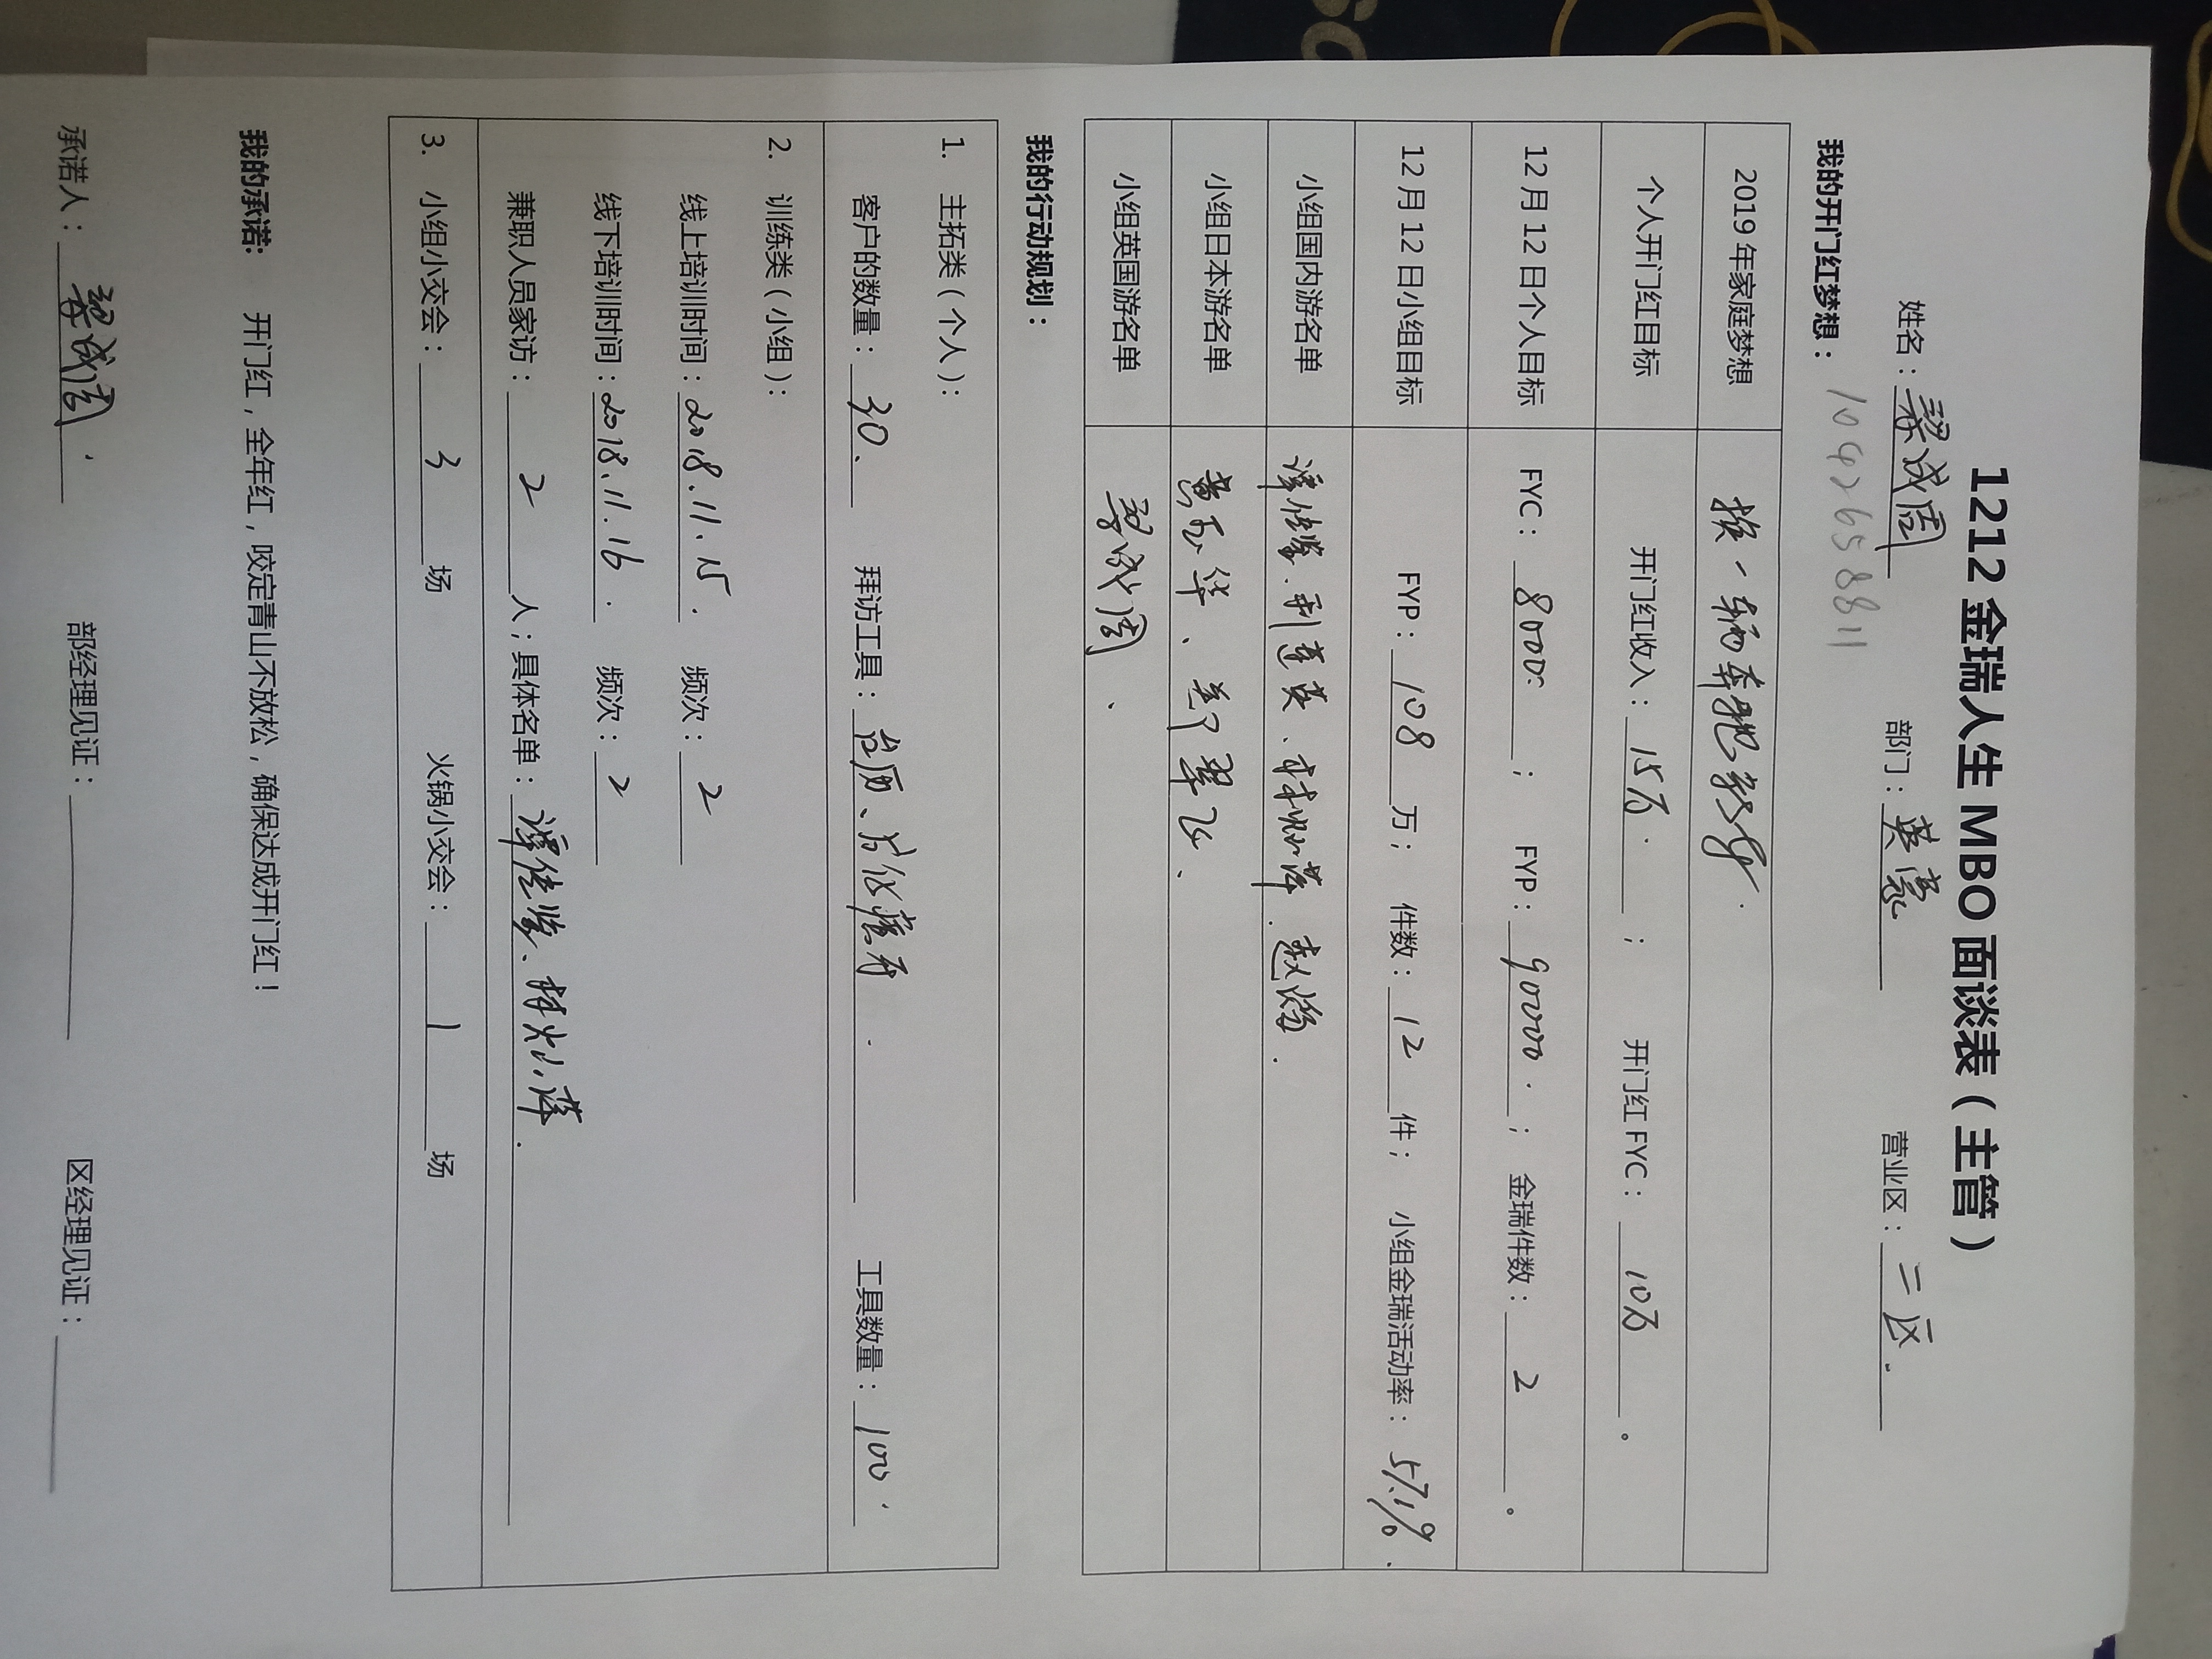 1212金瑞人生MBO面谈表（主管）
姓名：梁成周 部门：英豪 营业区：二区.
我的开门红梦想： 1092658811
2019年家庭梦想 换一辆奔驰
个人开门红目标 开门红收入：15万.； 开门红FYC：10万。
12月12日个人目标 FYC：8000； FYP：90000.； 金瑞件数：2。
12月12日小组目标 FYP：108万； 件数：12件； 小组金瑞活动率：57.1%.
小组国内游名单
小组日本游名单 黄玉华、
小组英国游名单 梁成周、
我的行动规划：
1. 主拓类（个人）：
客户的数量：30、 拜访工具：台历、 工具数量：100
2. 训练类（小组）：
线上培训时间：2018.11.15. 频次：2
线下培训时间：2018.11.16. 频次：2
兼职人员家访：2人；具体名单：
3. 小组小交会：3场 火锅小交会：1场
我的承诺： 开门红，全年红，咬定青山不放松，确保达成开门红！
承诺人：梁成周. 部经理见证： 区经理见证：